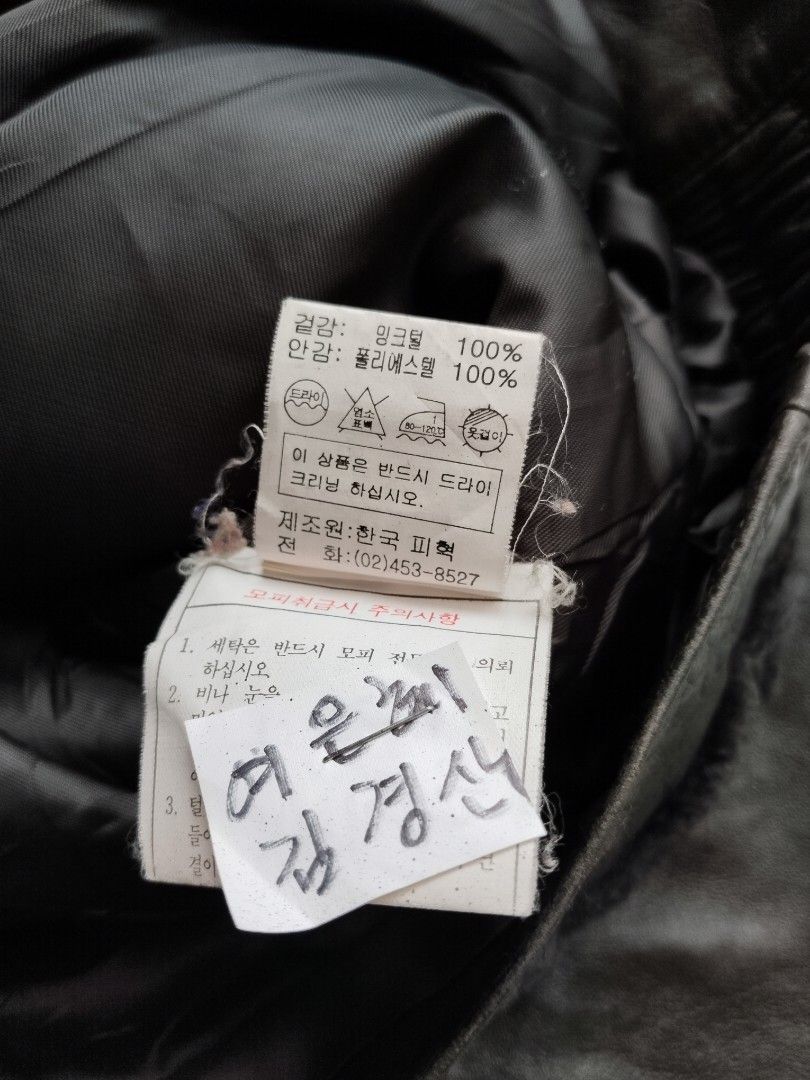 겉감: 밍크털 100%
안감: 폴리에스텔 100%
드라이
염소
표백
1
80-120℃
옷걸이
이 상품은 반드시 드라이
크리닝 하십시오.
제조원:한국 피혁
전 화:(02)453-8527
모피취급시 주의사항
1. 세탁은 반드시 모피 의뢰
하십시오
2. 비나 눈을
고
3. 털
여 은
김 경산